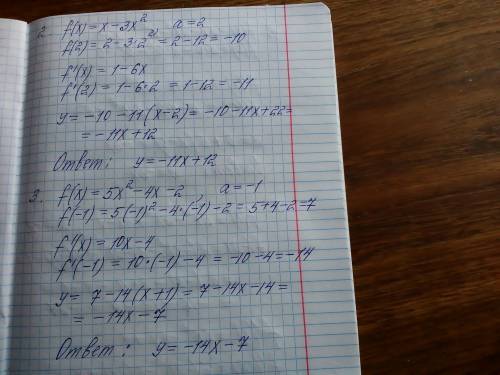 2. f(x) = x - 3x² a = 2
f(2) = 2 - 3·2² = 2 - 12 = -10
f'(x) = 1 - 6x
f'(2) = 1 - 6·2 = 1 - 12 = -11
y = -10 - 11(x-2) = -10 - 11x + 22 =
= -11x + 12
Ответ: y = -11x + 12
3. f(x) = 5x² - 4x - 2, a = -1
f(-1) = 5(-1)² - 4·(-1) - 2 = 5 + 4 - 2 = 7
f'(x) = 10x - 4
f'(-1) = 10·(-1) - 4 = -10 - 4 = -14
y = 7 - 14(x+1) = 7 - 14x - 14 =
= -14x - 7
Ответ: y = -14x - 7